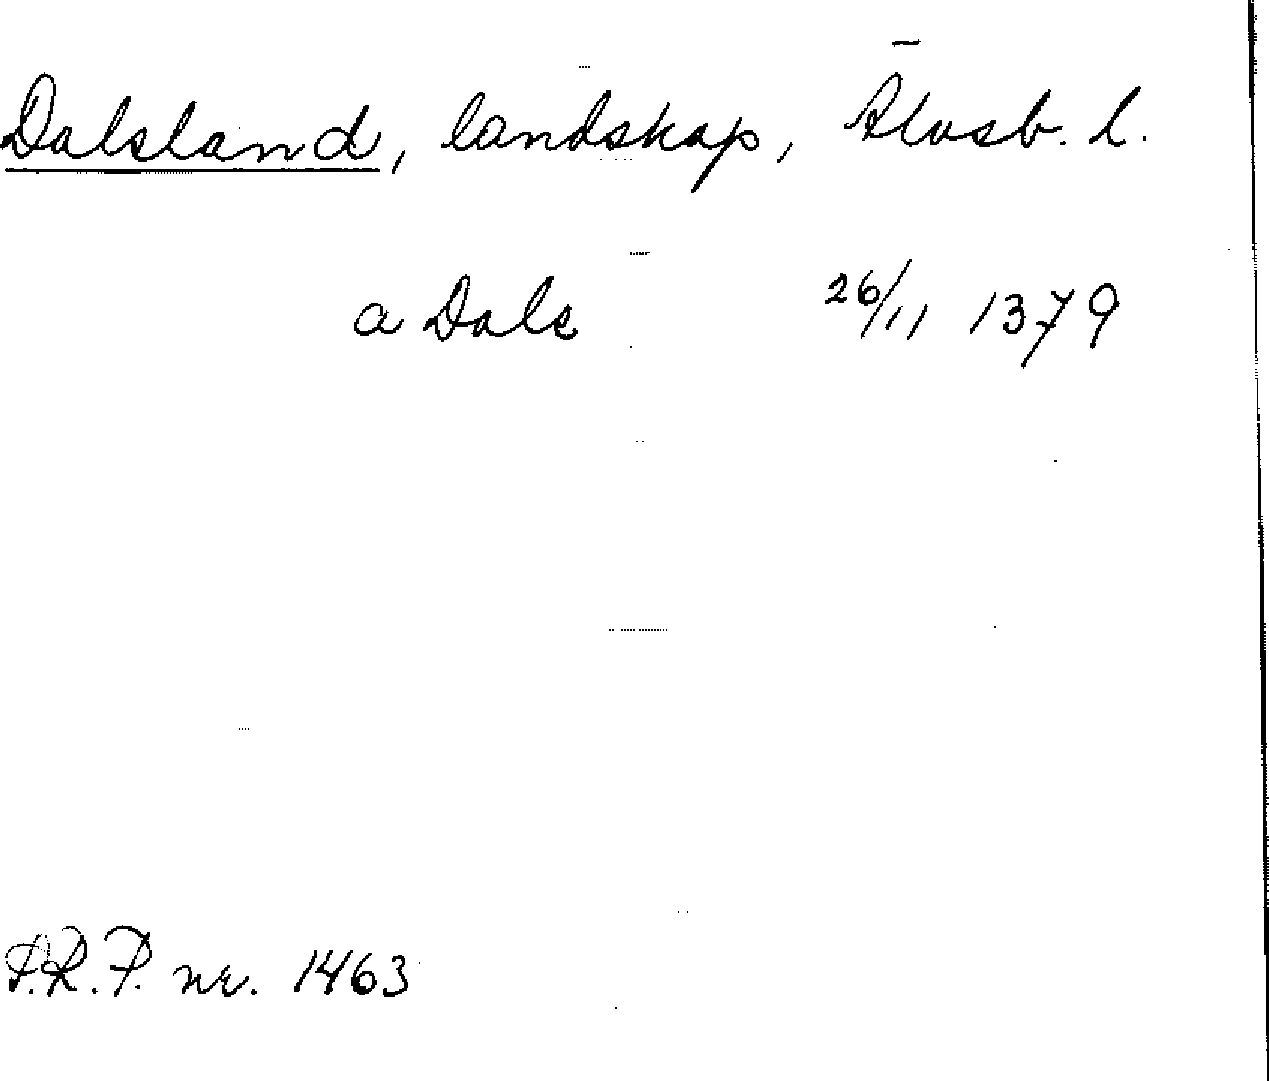 Dalsland, landskap, Älvsb. l.
a Dale 26/11 1379
P.R.P. nr. 1463